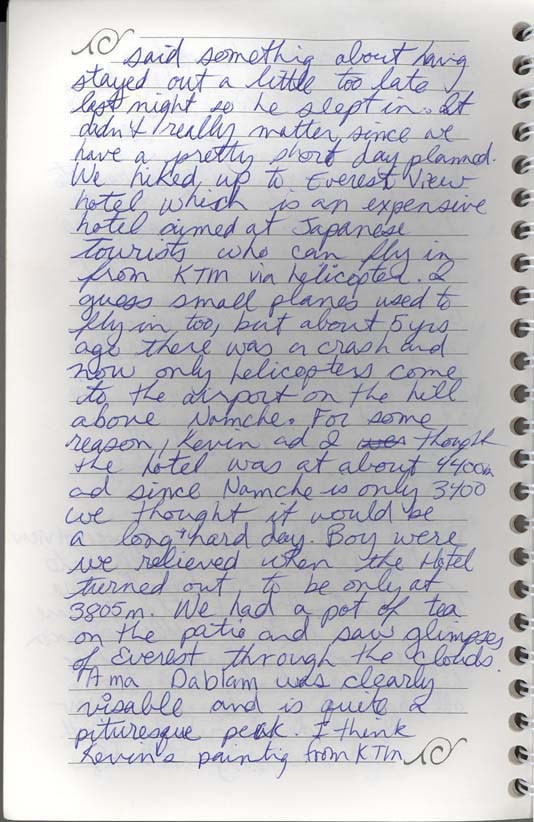 said something about having
stayed out a little too late
last night so he slept in. It
didn't really matter since we
have a pretty short day planned.
We hiked up to Everest View
hotel which is an expensive
hotel aimed at Japanese
tourists who can fly in
from KTM via helicopter. I
guess small planes used to
fly in too, but about 5 yrs
ago there was a crash and
now only helicopters come
to the airport on the hill
above Namche. For some
reason, Kevin ad I was thought
the hotel was at about 4400m
ad since Namche is only 3400
we thought it would be
a long + hard day. Boy were
we relieved when the Hotel
turned out to be only at
3805m. We had a pot of tea
on the patio and saw glimpses
of Everest through the clouds.
Ama Dablam was clearly
visable and is quite a
pituresque peak. I think
Kevin's paintig from KTM